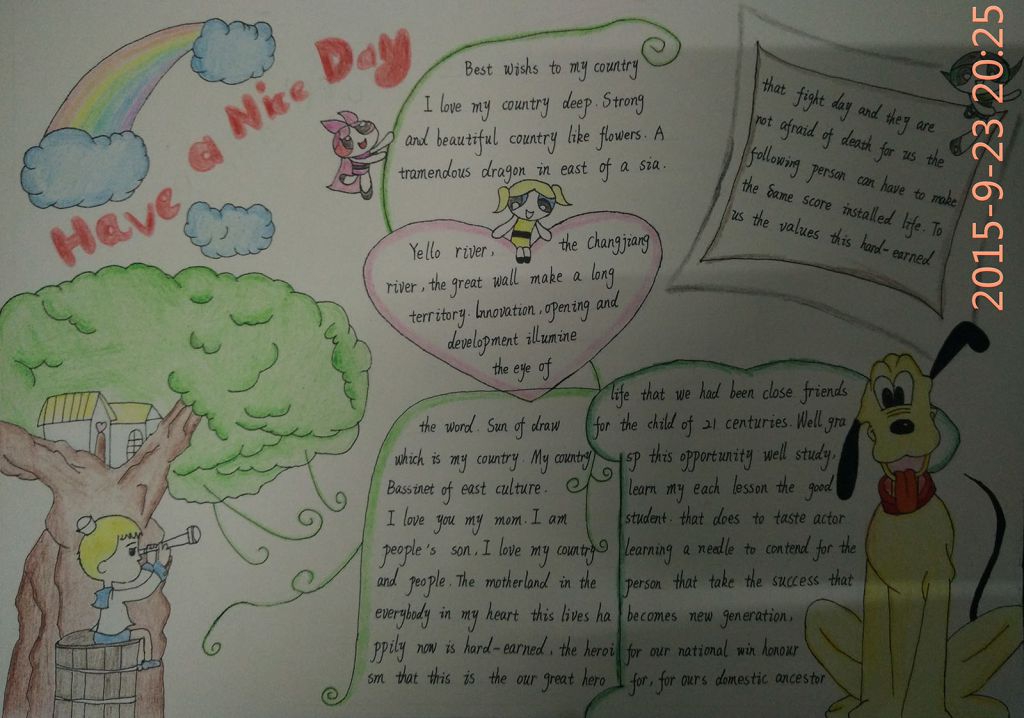 Have a Nice Day
Best wishes to my country
I love my country deep. Strong
and beautiful country like flowers. A
tramendous dragon in east of a sia.
Yello river, the Changjiang
river, the great wall make a long
territory. Innovation, opening and
development illumine
the eye of
the word. Sun of draw
which is my country. My country
Bassinet of east culture.
I love you my mom. I am
people's son, I love my country
and people. The motherland in the
everybody in my heart this lives ha
ppily now is hard-earned, the heroi
sm that this is the our great hero
that fight day and they are
not afraid of death for us the
following person can have to make
the same score installed life. To
us the values this hard-earned
life that we had been close friends
for the child of 21 centuries. Well gra
sp this opportunity well study,
learn my each lesson the good
student. that does to taste actor
learning a needle to contend for the
person that take the success that
becomes new generation,
for our national win honour
for, for ours domestic ancestor
2015-9-23 20:25